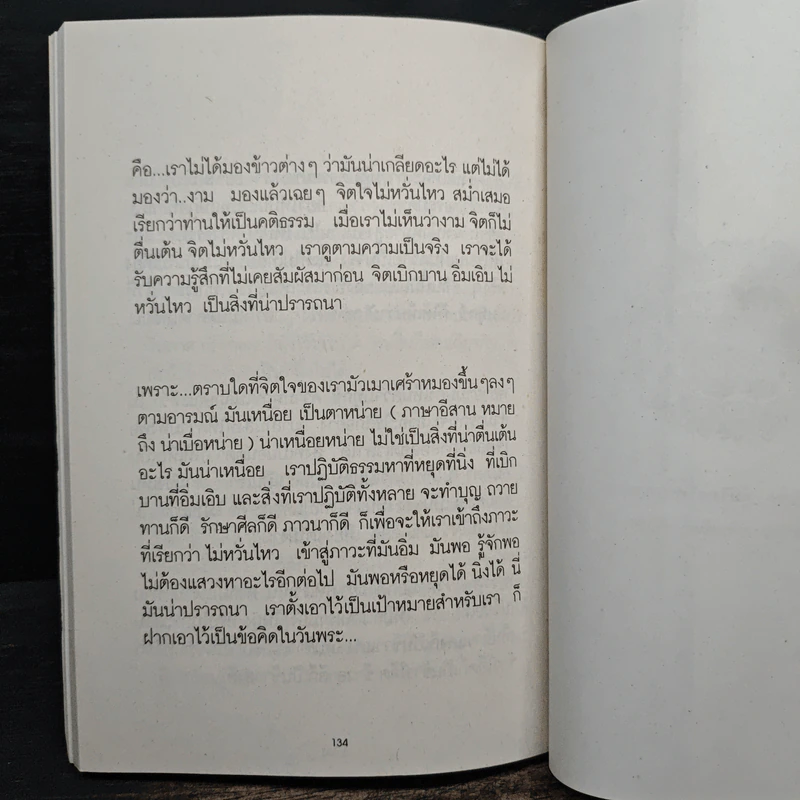 คือ...เราไม่ได้มองข้าวต่างๆ ว่ามันน่าเกลียดอะไร แต่ไม่ได้
มองว่า..งาม มองแล้วเฉยๆ จิตใจไม่หวั่นไหว สม่ำเสมอ
เรียกว่าท่านให้เป็นคติธรรม เมื่อเราไม่เห็นว่างาม จิตก็ไม่
ตื่นเต้น จิตไม่หวั่นไหว เราดูตามความเป็นจริง เราจะได้
รับความรู้สึกที่ไม่เคยสัมผัสมาก่อน จิตเบิกบาน อิ่มเอิบ ไม่
หวั่นไหว เป็นสิ่งที่น่าปรารถนา
เพราะ...ตราบใดที่จิตใจของเรามัวเมาเศร้าหมองขึ้นๆลงๆ
ตามอารมณ์ มันเหนื่อย เป็นตาหน่าย ( ภาษาอีสาน หมาย
ถึง น่าเบื่อหน่าย ) น่าเหนื่อยหน่าย ไม่ใช่เป็นสิ่งที่น่าตื่นเต้น
อะไร มันน่าเหนื่อย เราปฏิบัติธรรมหาที่หยุดที่นิ่ง ที่เบิก
บานที่อิ่มเอิบ และสิ่งที่เราปฏิบัติทั้งหลาย จะทำบุญ ถวาย
ทานก็ดี รักษาศีลก็ดี ภาวนาก็ดี ก็เพื่อจะให้เราเข้าถึงภาวะ
ที่เรียกว่า ไม่หวั่นไหว เข้าสู่ภาวะที่มันอิ่ม มันพอ รู้จักพอ
ไม่ต้องแสวงหาอะไรอีกต่อไป มันพอหรือหยุดได้ นิ่งได้ นี่
มันน่าปรารถนา เราตั้งเอาไว้เป็นเป้าหมายสำหรับเรา ก็
ฝากเอาไว้เป็นข้อคิดในวันพระ...
134